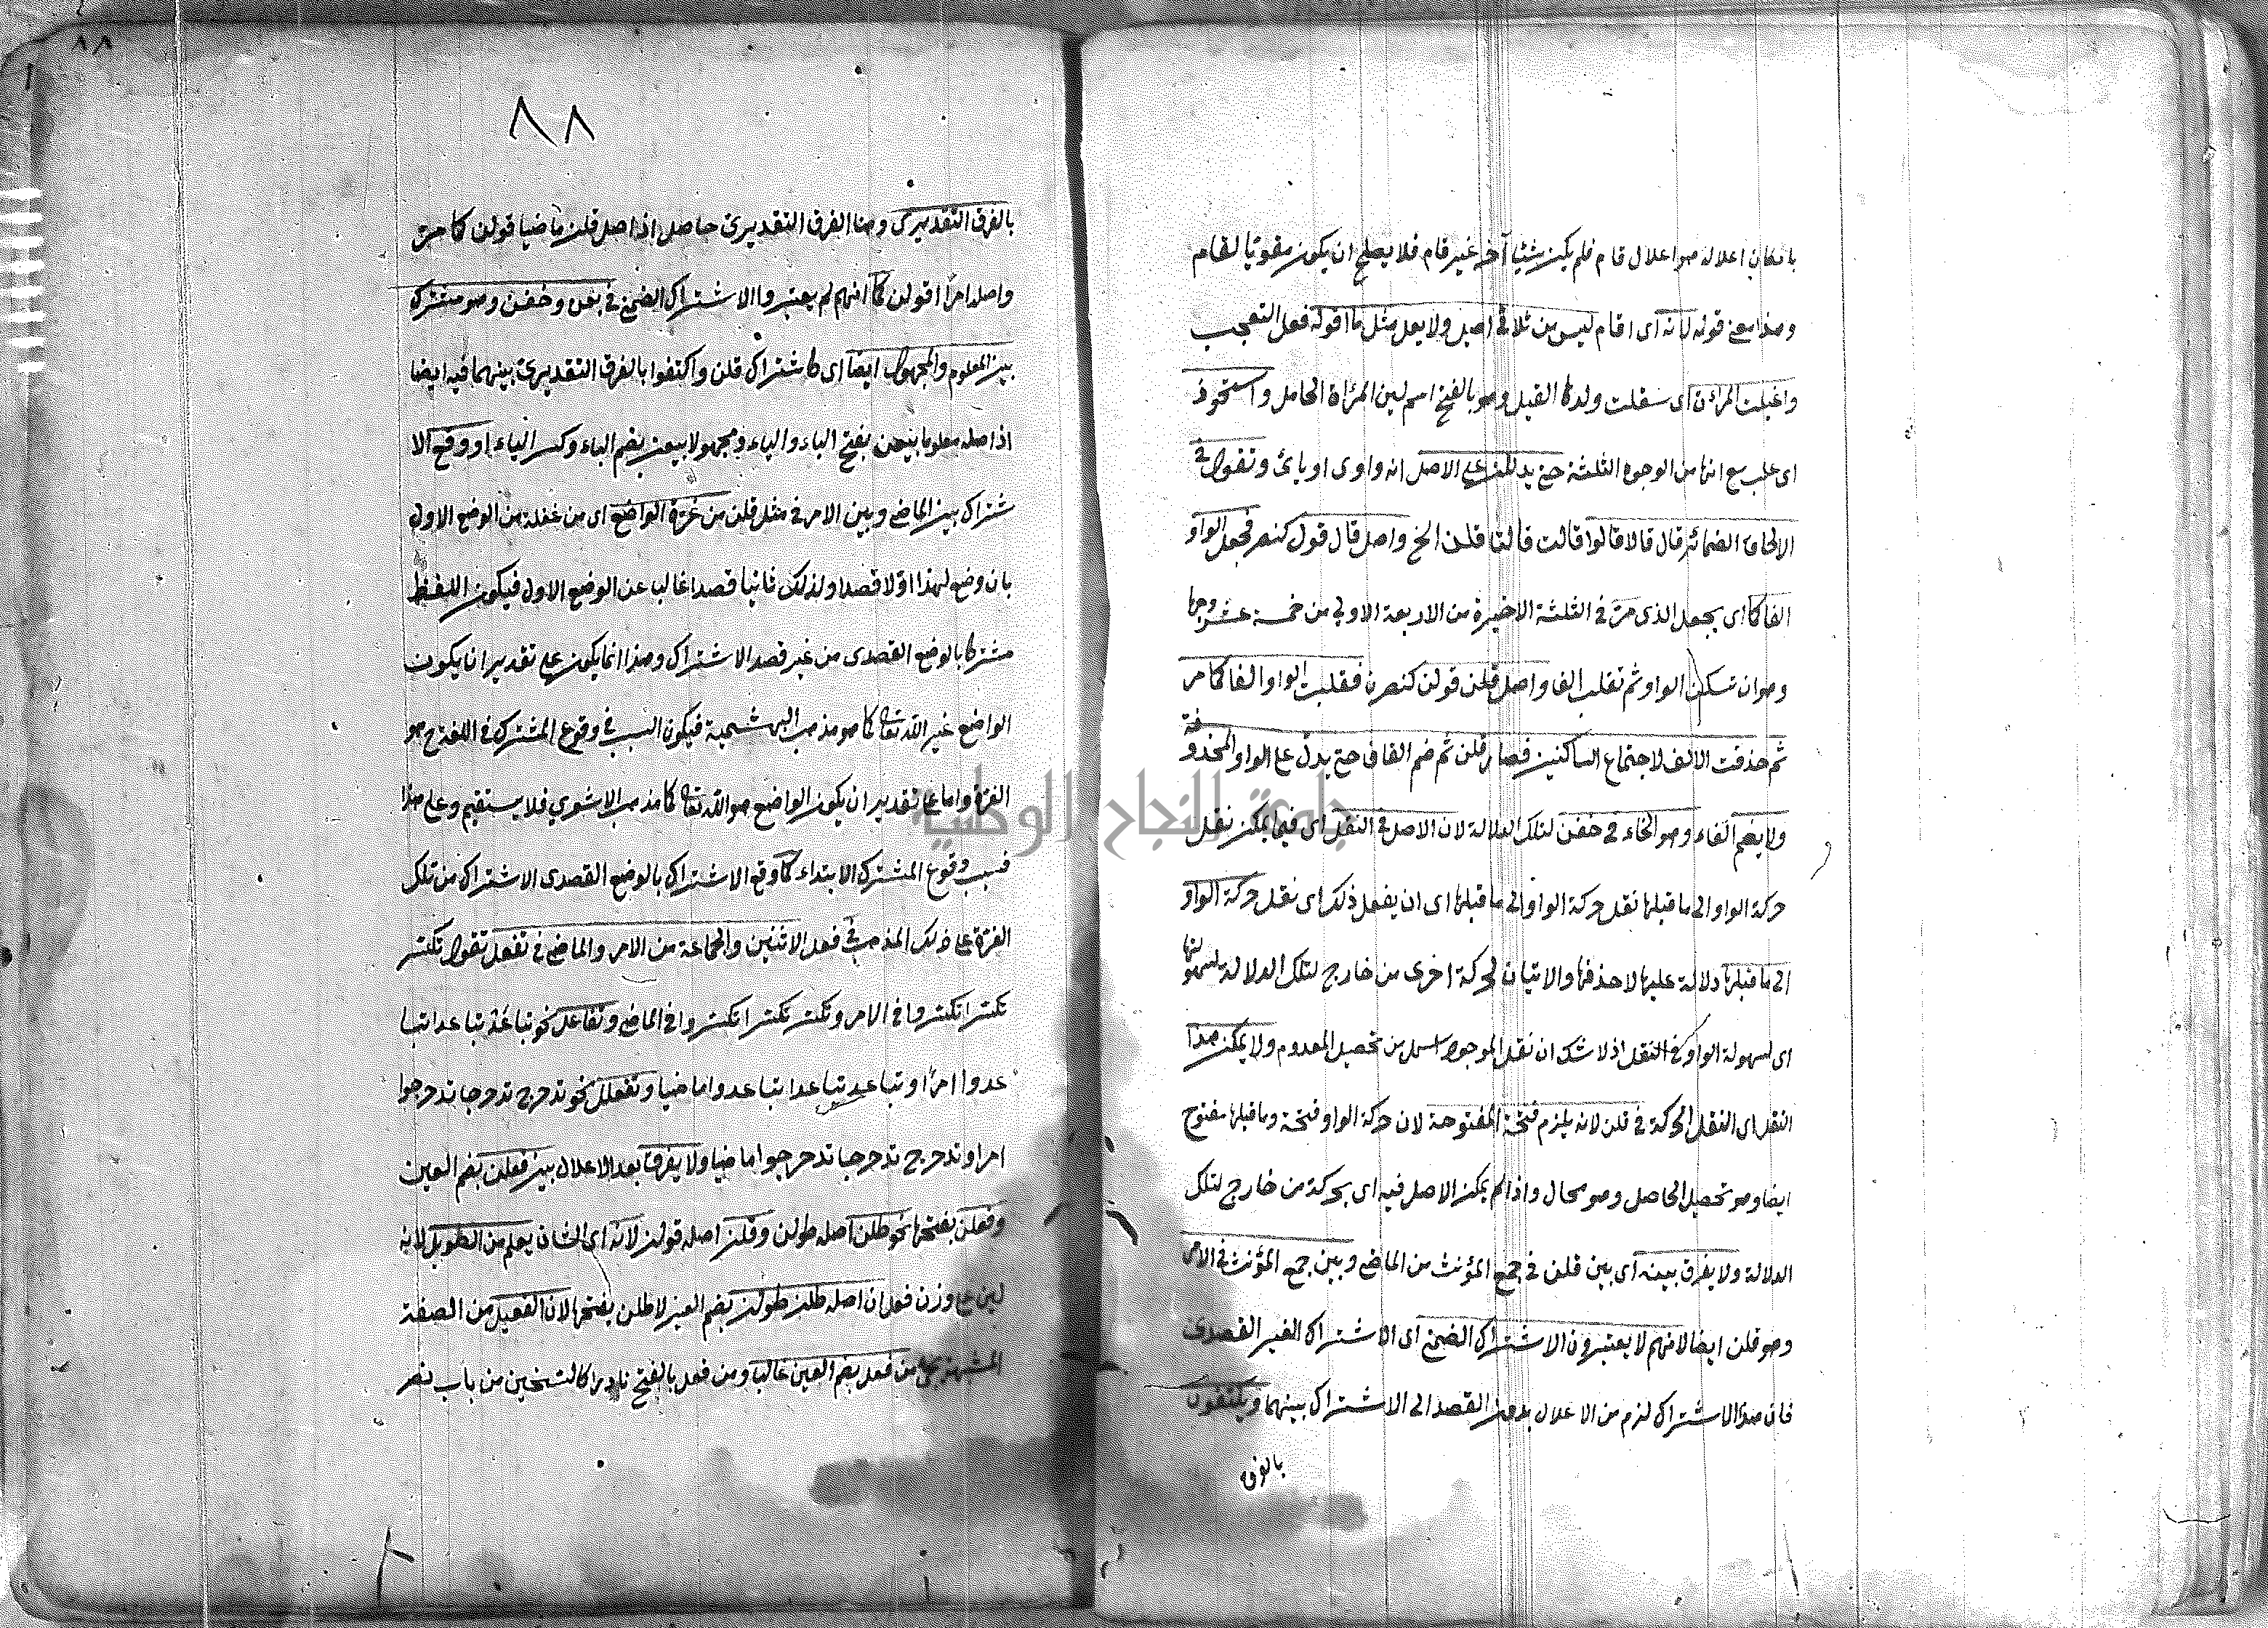 بل كان اعلاله هو اعلال قام فلم يكن شيئا آخر غير قام فلا يصلح ان يكون مقويا لقام
وهذا معنى قوله لانه اى اقام ليس من ثلاثى اصيل ولا يعل مثل ما اقوله فعل التعجب
واغيلت المرأة اى سقت ولدها الغيل وهو بالفتح اسم لبن المرأة الحامل واستحوذ
اى غلب مع انها من الوجوه الثلثة حتى يدللن على الاصل انه واوى او يائى وتقول فى
الالحاق الضمائر قال قالا قالوا قالت قالتا قلن الخ واصل قال قول كنصر فجعل الواو
الفا كما اى يجعل الذى مر فى الثلثة الاخيرة من الاربعة الاولى من خمسة عشر وجها
وهو ان تسكن الواو ثم تقلب الفا واصل قلن قولن كنصرن فقلبت الواو الفا كما مر
ثم حذفت الالف لاجتماع الساكنين فصار قلن ثم ضم القاف حتى يدل على الواو المحذوفة
ولا يضم الفاء وهو الخاء فى خفن لتلك الدلالة لان الاصل فى النقل اى فيما يمكن نقل
حركة الواو الى ما قبلها نقل حركة الواو الى ما قبلها اى ان يفعل ذلك اى نقل حركة الواو
الى ما قبلها دلالة عليها لا حذفها والاتيان لحركة اخرى من خارج لتلك الدلالة لسهولتها
اى لسهولة الواو فى النقل اذ لا شك ان نقل الموجود اسهل من تحصيل المعدوم ولا يمكن هذا
النقل اى النقل الحركة فى قلن لانه يلزم فتحة المفتوحة لان حركة الواو فتحة وما قبلها مفتوح
ايضا وهو تحصيل الحاصل وهو محال واذا لم يمكن الاصل فيه اى بحركة من خارج لتلك
الدلالة ولا يفرق بينه اى بين قلن فى جمع المؤنث من الماضى وبين جمع المؤنث فى الامر
وهو قلن ايضا لانهم لا يعتبرون الاشتراك الضمنى اى الاشتراك الغير القصدى
فان هذا الاشتراك لزم من الاعلال بدون القصد الى الاشتراك بينهما ويكتفون
بالفرق
٨٨
بالفرق التقديرى وهنا الفرق التقديرى حاصل اذ اصل قلن ماضيا قولن كما مر
واصله امرا اقولن كما انهم لم يعتبروا الاشتراك الضمنى فى بعن وخفن وهو مشترك
بين المعلوم والمجهول ايضا اى كاشتراك قلن واكتفوا بالفرق التقديرى بينهما فيه ايضا
اذ اصله معلوما بيعن بفتح الباء والياء ومجهولا بيعن بضم الباء وكسر الياء او وقع الا
شتراك بين الماضى وبين الامر فى مثل قلن من غرة الواضع اى من غفلة من الوضع الاول
بان وضع لهذا اولا قصدا ولذلك ثانيا قصدا غالب عن الوضع الاول فيكون اللفظ
مشتركا بالوضع القصدى من غير قصد الاشتراك وهذا انما يكون على تقدير ان يكون
الواضع غير الله تعالى كما هو مذهب البهشمية فيكون السبب فى وقوع المشترك فى اللغة ح هو
الغرة واما على تقدير ان يكون الواضع هو الله تعالى كما مذهب الاشوي فلا يستقيم وعلى هذا
فسبب وقوع المشترك الابتداء كما وقع الاشتراك بالوضع القصدى الاشتراك من تلك
الغرة على ذلك المذهب فى فعل الاثنين والجماعة من الامر والماضى فى تفعل تقول تكسر
تكسرا تكسروا فى الامر وتكسر تكسرا تكسروا فى الماضى وتفاعل نحو تباعد تباعدا تبا
عدوا امرا وتباعد تباعدا تباعدوا ماضيا وتفعلل نحو تدحرج تدحرجا تدحرجوا
امرا وتدحرج تدحرجا تدحرجوا ماضيا ولا يفرق بعد الاعلال بين فعلن بضم العين
وفعلن بفتحها نحو طلن اصله طولن وقلن اصله قولن لانه اى الشان يعلم من الطويل لانه
ليس على وزن فعل ان اصله طلن طولن بضم العين لا طلن بفتحها لان الفعيل من الصفة
المشبهة يجئ من فعل بضم العين غالبا ومن فعل بالفتح نادرا كالتسخين من باب نصر